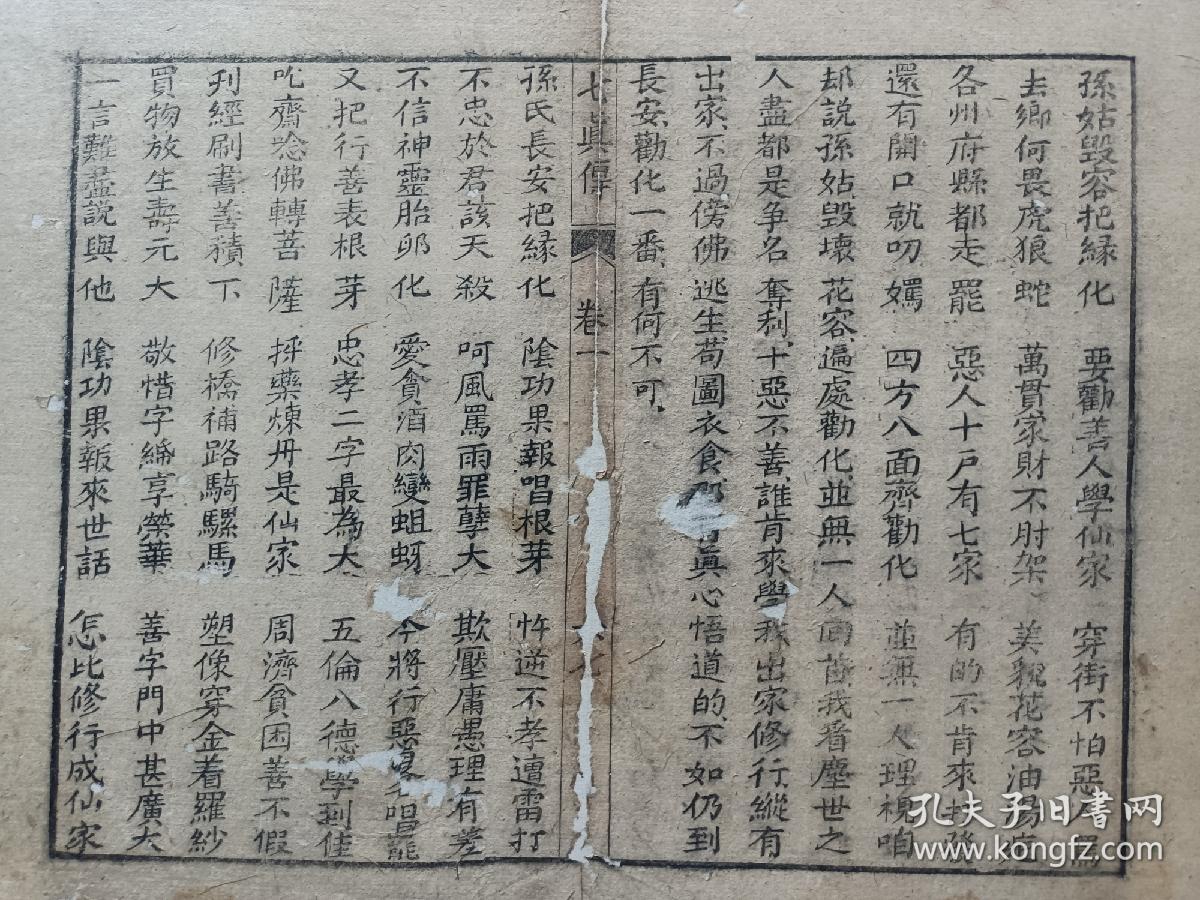 孫姑毀容把緣化　要勸善人學仙家　穿街不怕惡
去鄉何畏虎狼蛇　萬貫家財不肘架　美貌花容油易
各州府縣都走罷　惡人十戶有七家　有的不肯來
還有開口就叨罵　四方八面齊勸化　並無一人理視咱
却說孫姑毀壞花容遍處勸化並無一人回首我看塵世之
人盡都是争名奪利十惡不善誰肯來學我出家修行縱有
出家不過傍佛逃生苟圖衣食真心悟道的不如仍到
長安勸化一番有何不可
七真傳　卷一
孫氏長安把緣化　陰功果報唱根芽　忤逆不孝遭雷打
不忠於君該天殺　呵風罵雨罪孽大　欺壓庸愚理有差
不信神靈胎卵化　愛貪酒肉變蛆蚜　今將行惡唱罷
又把行善表根芽　忠孝二字最為大　五倫八德學到佳
吃齋念佛轉菩薩　捀藥煉丹是仙家　周濟貧困善不假
刋經刷書善積下　修橋補路騎騾馬　塑像穿金着羅紗
買物放生壽元大　敬惜字紙享榮華　善字門中甚廣大
一言難盡說與他　陰功果報來世話　怎比修行成仙家
孔夫子旧书网
www.kongfz.com